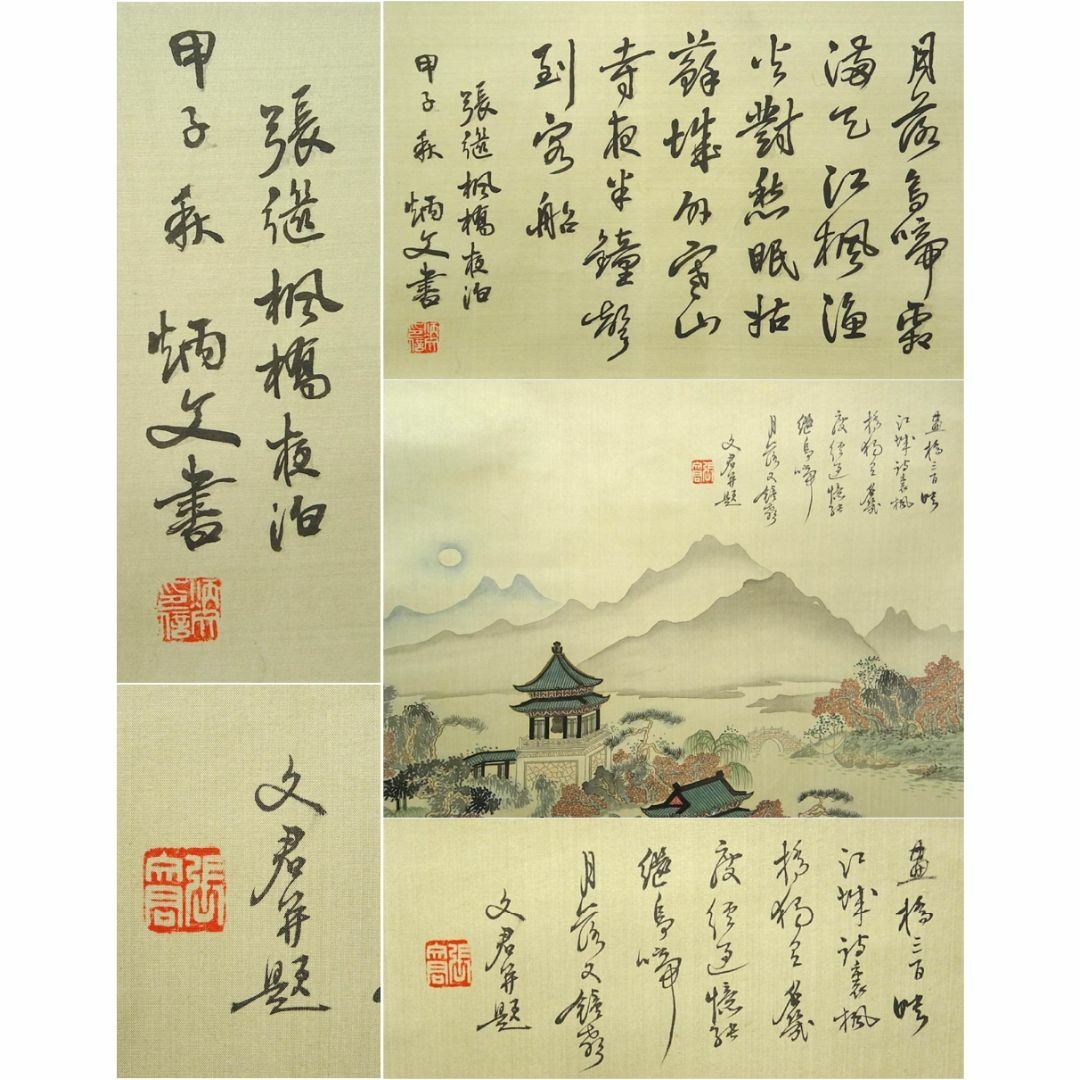 張繼楓橋夜泊
甲子秋 炳文書
炳文印信
月落烏啼霜
滿天江楓漁
火對愁眠姑
蘇城外寒山
寺夜半鐘聲
到客船
張繼楓橋夜泊
甲子秋 炳文書
炳文印信
畫橋三百映
江城詩裏楓
橋獨有名幾
度經過憶張
繼烏啼
月落又鐘聲
文君并題
文君并題
畫橋三百映
江城詩裏楓
橋獨有名幾
度經過憶張
繼烏啼
月落又鐘聲
文君并題